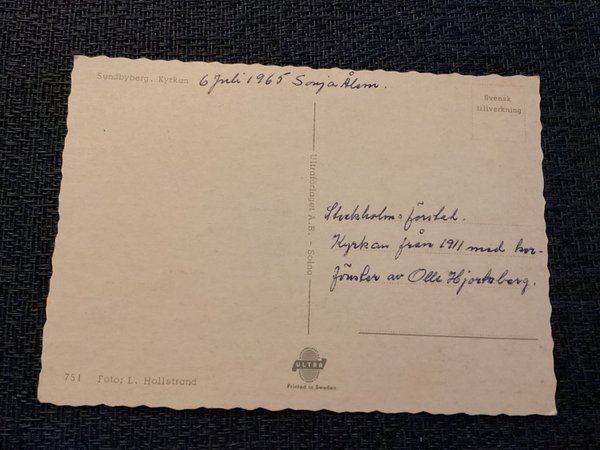 Sundbyberg. Kyrkan 6 Juli 1965 Sonja Ålem.
Svensk
tillverkning
Ultraförlaget A.B. - Solna
Stockholms förstad.
Kyrkan från 1911 med kor-
fönster av Olle Hjortzberg.
751 Foto: L. Hallstrand
ULTRA
Printed in Sweden